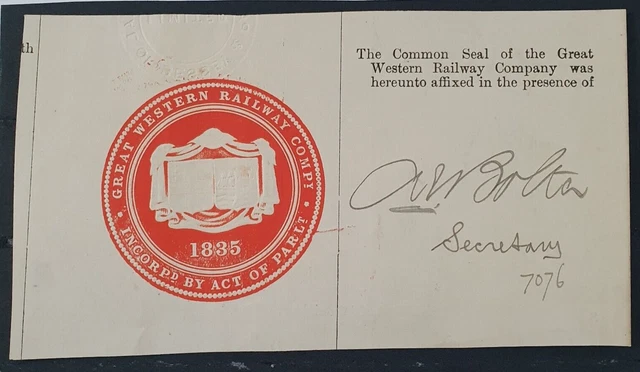 th
GREAT WESTERN RAILWAY COMPY
1835
INCORPD BY ACT OF PARLT
The Common Seal of the Great
Western Railway Company was
hereunto affixed in the presence of
A E Bolter
Secretary
7076